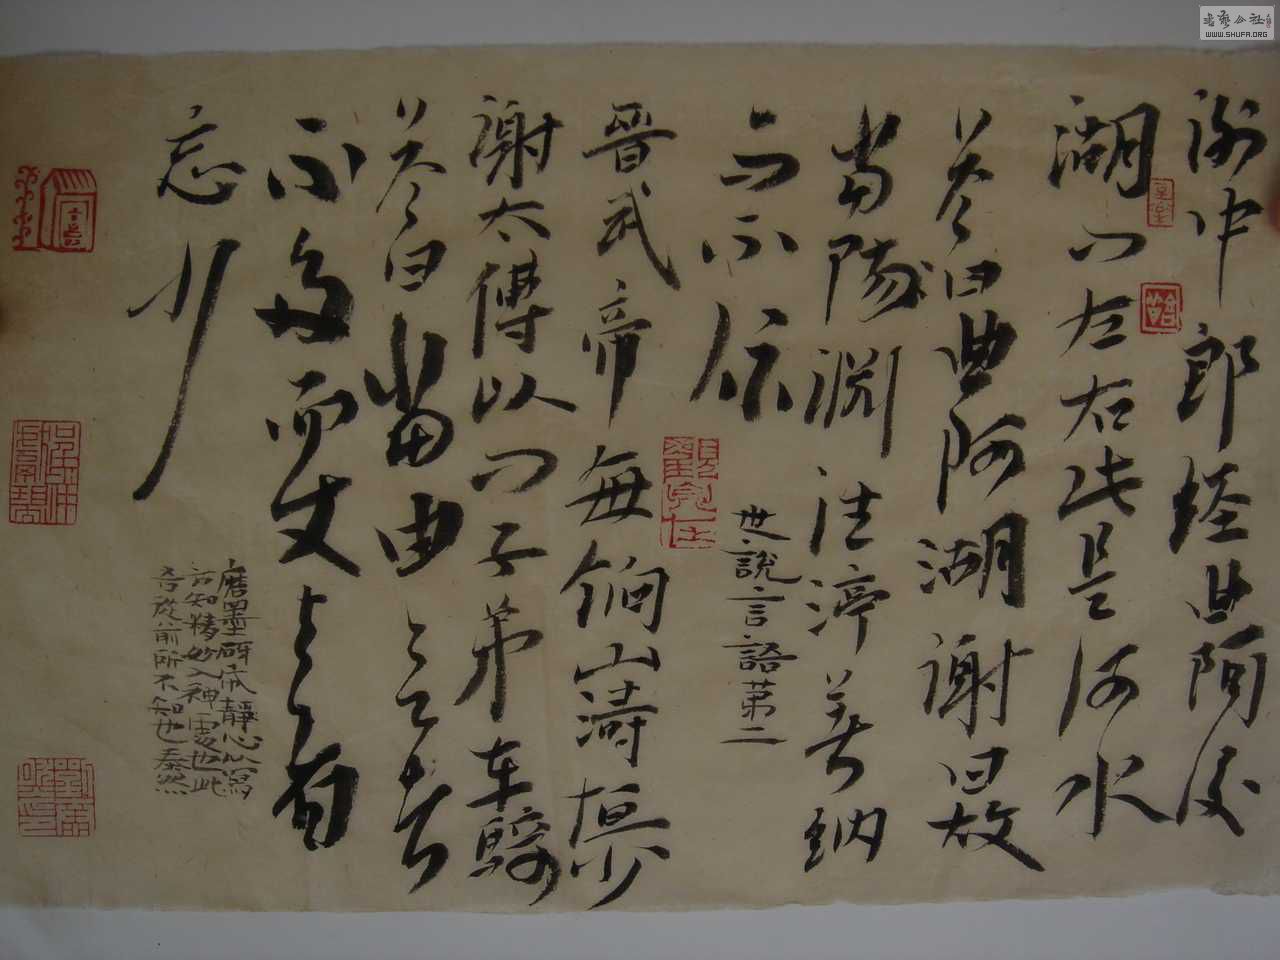 謝中郎經曲阿後
湖问左右此是何水
答曰曲阿湖謝曰故
當陽淵注渟著納
而不流
世說言語第二
晉武帝每餉山濤恒少
謝太傅以问子弟車騎
答曰當由欲者
不多而使與者
忘少
磨墨研底静心以寫
方知精妙入神處也此
吾從前所不知也泰然
書藝公社
WWW.SHUFA.ORG